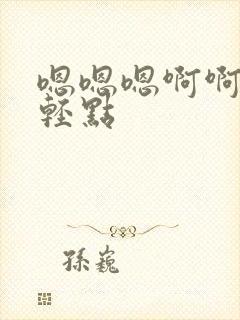 嗯嗯嗯啊啊
輕點
孫巍